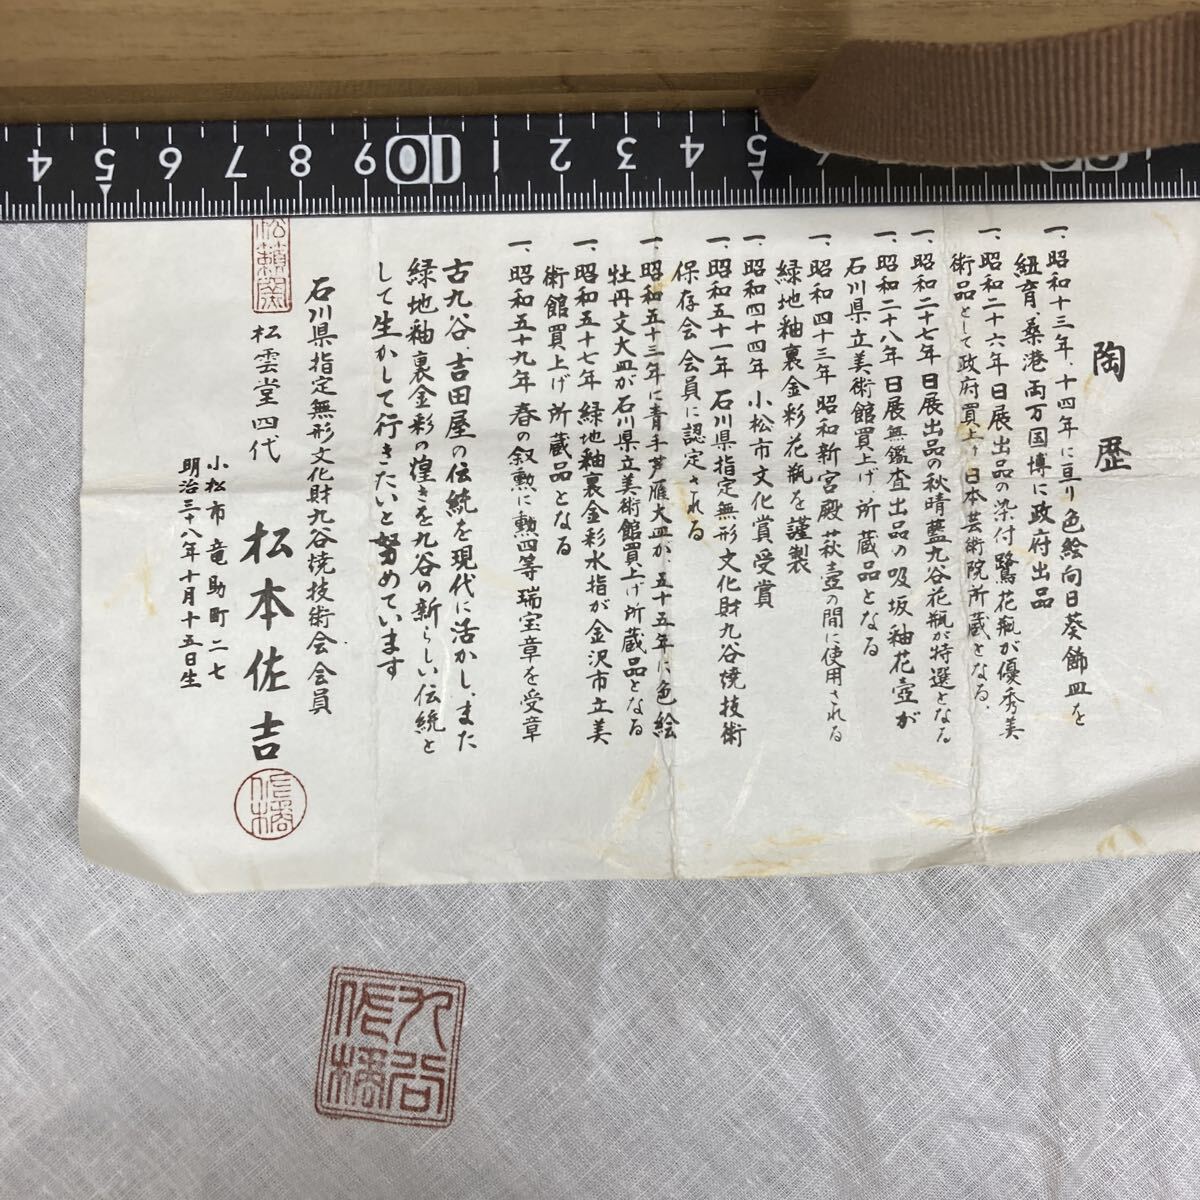 陶歴
一、昭和十三年、十四年に亘り色絵向日葵飾皿を
紐育、桑港両万国博に政府出品
一、昭和二十六年 日展出品の染付鷺花瓶が優秀美
術品として政府買上げ 日本芸術院所蔵となる。
一、昭和二十七年 日展出品の秋晴藍九谷花瓶が特選となる
一、昭和二十八年 日展無鑑査出品の吸坂釉花壺が
石川県立美術館買上げ 所蔵品となる
一、昭和四十三年 昭和新宮殿 萩壺の間に使用される
緑地釉裏金彩花瓶を謹製
一、昭和四十四年 小松市文化賞受賞
一、昭和五十一年 石川県指定無形文化財九谷焼技術
保存会 会員に認定される
一、昭和五十三年に青手芦雁大皿が、五十五年に色絵
牡丹文大皿が石川県立美術館買上げ所蔵品となる
一、昭和五十七年 緑地釉裏金彩水指が金沢市立美
術館買上げ 所蔵品となる
一、昭和五十九年 春の叙勲に勲四等 瑞宝章を受章
古九谷、吉田屋の伝統を現代に活かし、また
緑地釉裏金彩の煌きを九谷の新らしい伝統と
して生かして行きたいと努めています
石川県指定無形文化財九谷焼技術会 会員
松雲堂四代 松本佐吉
小松市 竜助町二七
明治三十八年十月十五日生
九谷
佐橘
4 5 6 7 8 9 10 1 2 3 4 5 6